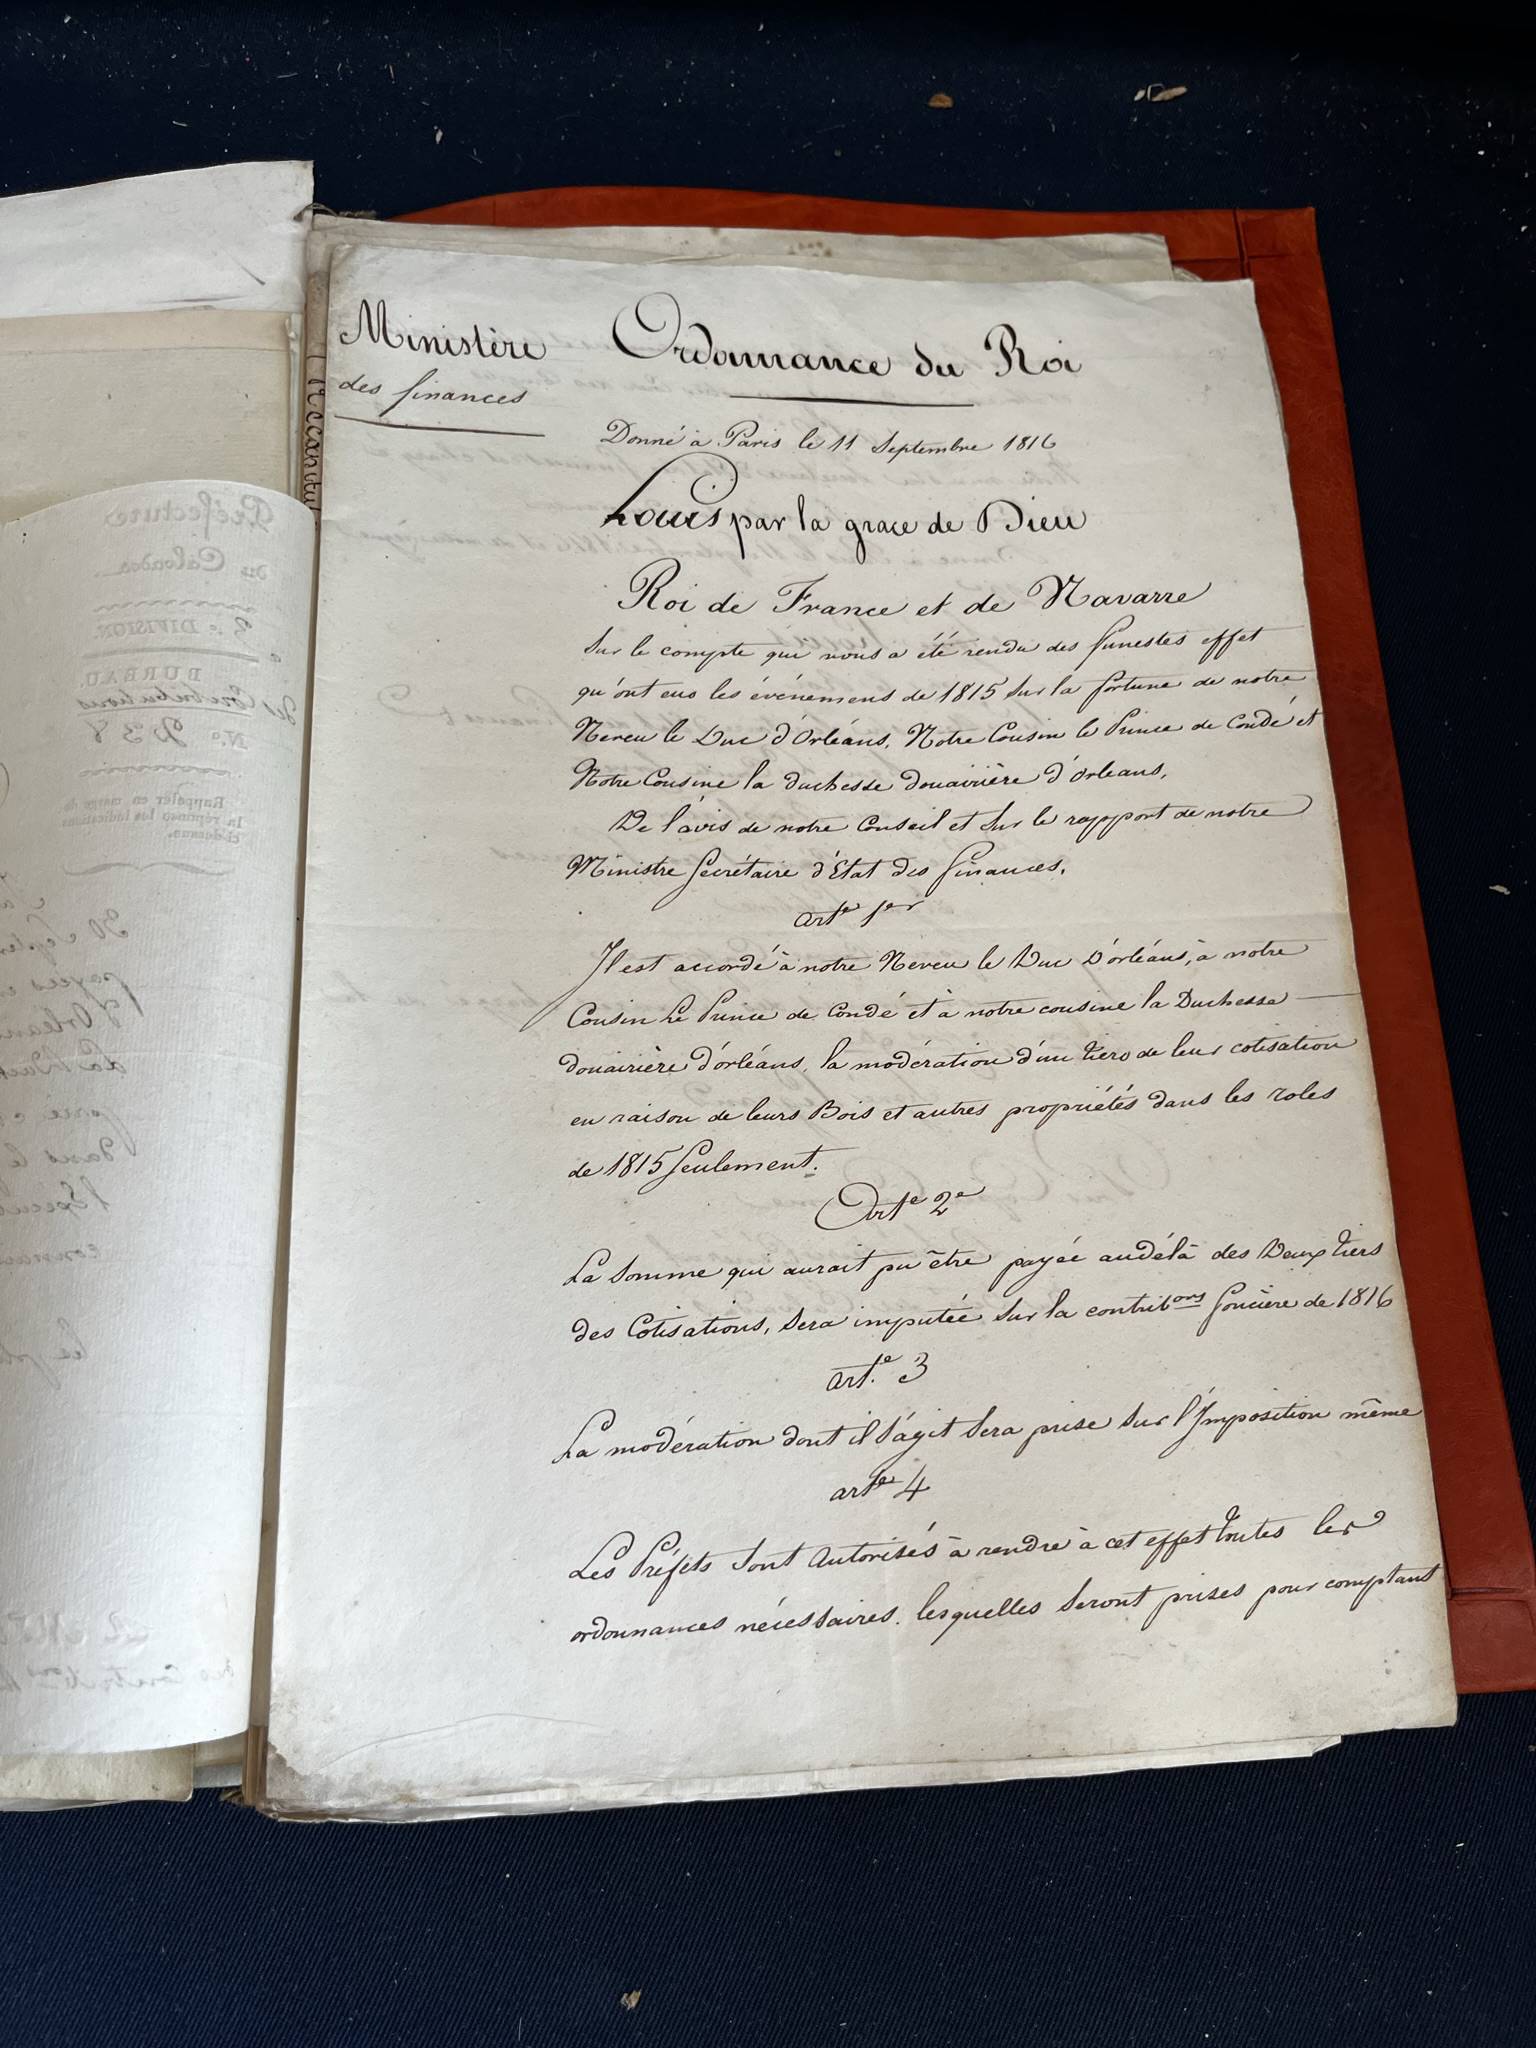 Ministère
des finances
Ordonnance du Roi
Donné à Paris le 11 Septembre 1816
Louis par la grace de Dieu
Roi de France et de Navarre
Sur le compte qui nous a été rendu des funestes effet
qu'ont eus les événemens de 1815 sur la fortune de notre
Neveu le Duc d'Orléans, Notre Cousin le Prince de Condé et
Notre Cousine la duchesse douairière d'orleans,
De l'avis de notre Conseil et sur le rapport de notre
Ministre Secrétaire d'Etat des finances,
arte 1er
Il est accordé à notre Neveu le Duc d'orléans, à notre
Cousin Le Prince de Condé et à notre cousine la Duchesse
douairière d'orléans, la modération d'un tiers de leur cotisation
en raison de leurs Bois et autres propriétés dans les roles
de 1815 seulement.
Arte 2e
La somme qui aurait pu être payée audélà des Deux tiers
des Cotisations, sera imputée sur la contribons foncière de 1816
arte. 3
La modération dont il s'agit sera prise sur l'Imposition même
arte 4
Les Préfets sont autorisés à rendre à cet effet toutes les
ordonnances nécessaires. lesquelles seront prises pour comptant
Préfecture
du Calvados
3e DIVISION.
BUREAU
des Contributions
N.o 238
Rappeler en marge de
la réponse les indications
ci-dessus.